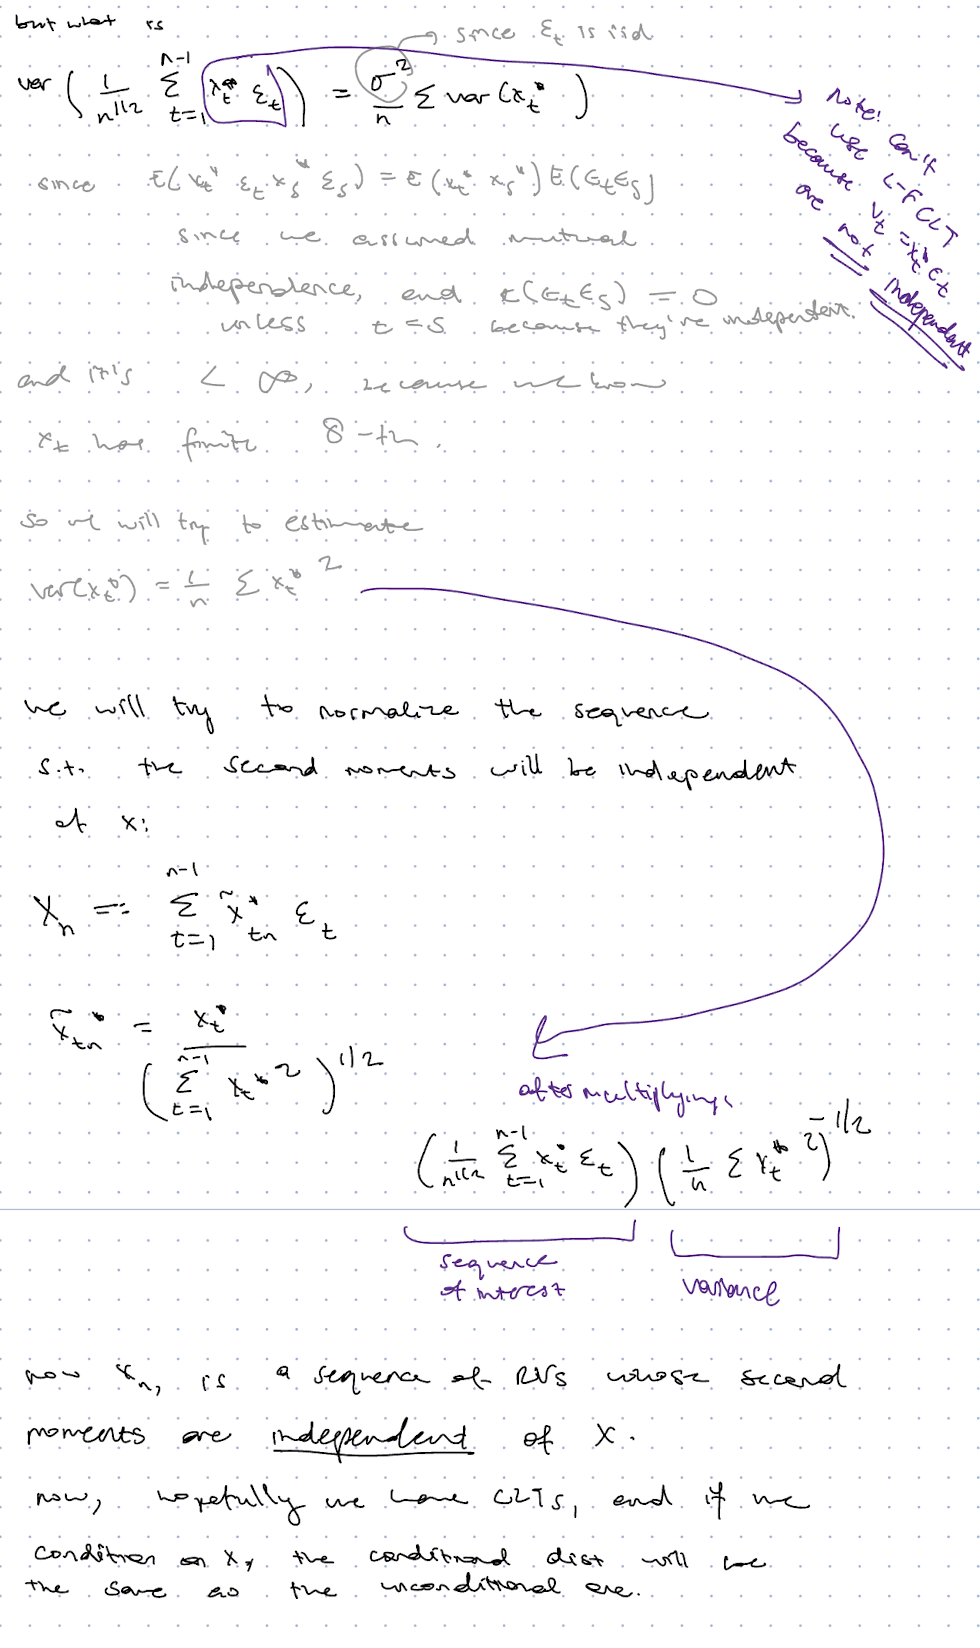 but what is
since εₜ is iid
var ( 1/n^{1/2} Σ_{t=1}^{n-1} xₜ* εₜ ) = σ²/n Σ var (xₜ* )
note: can't
use L-F CLT
because Vₜ = xₜ* εₜ
are not independent
since E( xₜ* εₜ xₛ* εₛ ) = E (xₜ* xₛ*) E (εₜ εₛ)
since we assumed mutual
independence, and E(εₜ εₛ) = 0
unless t = s because they're independent.
and it's < ∞, because we know
xₜ has finite 8-th.
so we will try to estimate
var(xₜ*) = 1/n Σ xₜ* ²
we will try to normalize the sequence
s.t. the second moments will be independent
of x:
Xₙ =: Σ_{t=1}^{n-1} x̃*ₜₙ εₜ
x̃ₜₙ* = xₜ* / ( Σ_{t=1}^{n-1} xₜ* ² )^{1/2}
after multiplying:
( 1/n^{1/2} Σ_{t=1}^{n-1} xₜ* εₜ ) ( 1/n Σ xₜ* ² )^{-1/2}
sequence
of interest
variance
now Xₙ, is a sequence of RVs whose second
moments are independent of X.
now, hopefully we have CLTs, and if we
condition on X, the conditional dist will be
the same as the unconditional one.